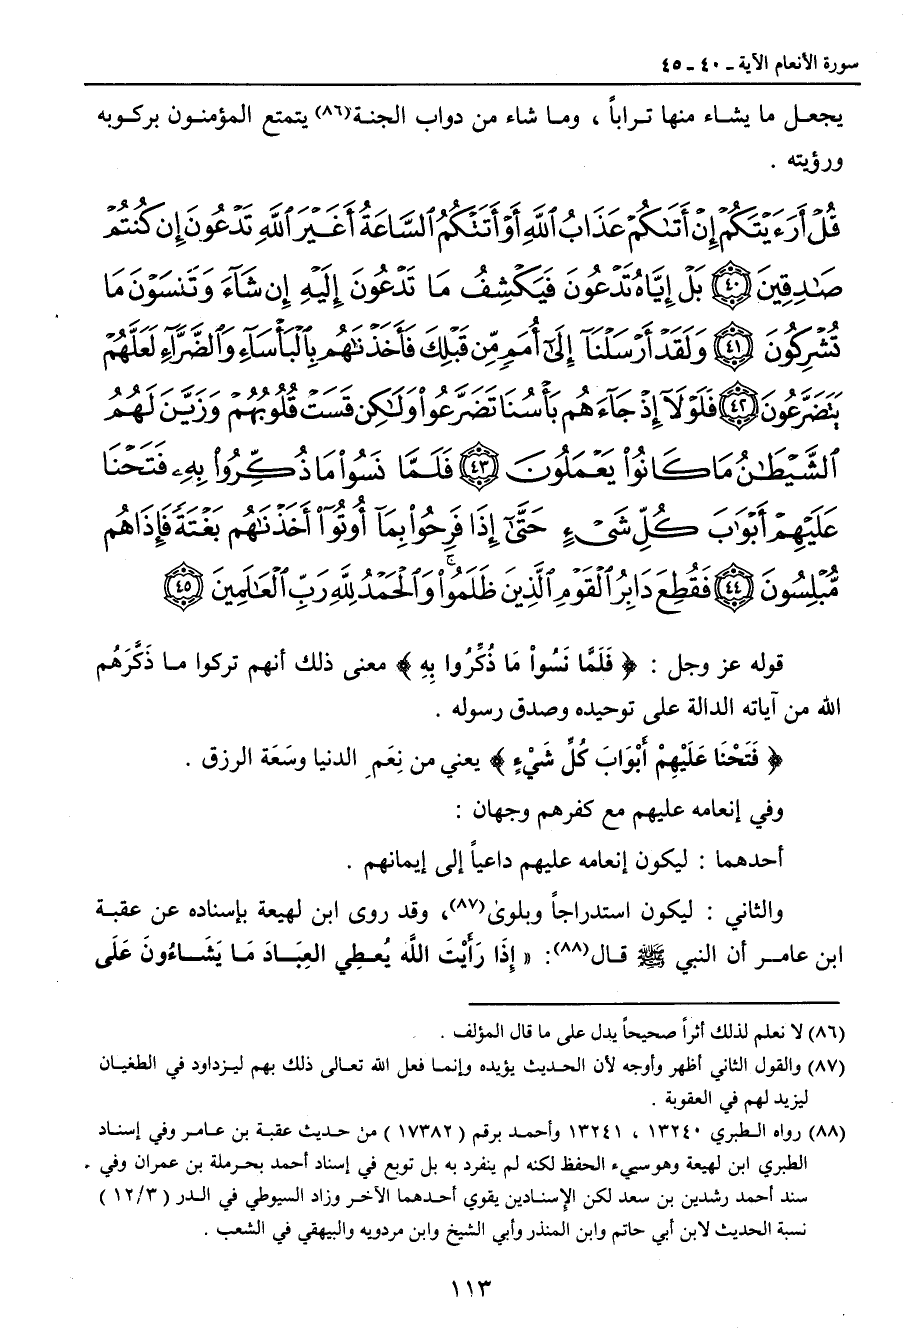 سورة الأنعام الآية ـ ٤٠ ـ ٤٥
يجعل ما يشاء منها تراباً ، وما شاء من دواب الجنة(٨٦) يتمتع المؤمنون بركوبه
ورؤيته .
قُلْ أَرَءَيْتَكُمْ إِنْ أَتَىٰكُمْ عَذَابُ ٱللَّهِ أَوْ أَتَتْكُمُ ٱلسَّاعَةُ أَغَيْرَ ٱللَّهِ تَدْعُونَ إِن كُنتُمْ
صَـٰدِقِينَ ﴿٤٠﴾ بَلْ إِيَّاهُ تَدْعُونَ فَيَكْشِفُ مَا تَدْعُونَ إِلَيْهِ إِن شَآءَ وَتَنسَوْنَ مَا
تُشْرِكُونَ ﴿٤١﴾ وَلَقَدْ أَرْسَلْنَآ إِلَىٰٓ أُمَمٍ مِّن قَبْلِكَ فَأَخَذْنَـٰهُم بِٱلْبَأْسَآءِ وَٱلضَّرَّآءِ لَعَلَّهُمْ
يَتَضَرَّعُونَ ﴿٤٢﴾ فَلَوْلَآ إِذْ جَآءَهُم بَأْسُنَا تَضَرَّعُوا۟ وَلَـٰكِن قَسَتْ قُلُوبُهُمْ وَزَيَّنَ لَهُمُ
ٱلشَّيْطَـٰنُ مَا كَانُوا۟ يَعْمَلُونَ ﴿٤٣﴾ فَلَمَّا نَسُوا۟ مَا ذُكِّرُوا۟ بِهِۦ فَتَحْنَا
عَلَيْهِمْ أَبْوَٰبَ كُلِّ شَىْءٍ حَتَّىٰٓ إِذَا فَرِحُوا۟ بِمَآ أُوتُوٓا۟ أَخَذْنَـٰهُم بَغْتَةً فَإِذَا هُم
مُّبْلِسُونَ ﴿٤٤﴾ فَقُطِعَ دَابِرُ ٱلْقَوْمِ ٱلَّذِينَ ظَلَمُوا۟ ۚ وَٱلْحَمْدُ لِلَّهِ رَبِّ ٱلْعَـٰلَمِينَ ﴿٤٥﴾
قوله عز وجل : ﴿ فَلَمَّا نَسُواْ مَا ذُكِّرُوا بِهِ ﴾ معنى ذلك أنهم تركوا ما ذَكَّرَهُم
الله من آياته الدالة على توحيده وصدق رسوله .
﴿ فَتَحْنَا عَلَيْهِمْ أَبْوَابَ كُلِّ شَيْءٍ ﴾ يعني من نِعَمِ الدنيا وسَعَة الرزق .
وفي إنعامه عليهم مع كفرهم وجهان :
أحدهما : ليكون إنعامه عليهم داعياً إلى إيمانهم .
والثاني : ليكون استدراجاً وبلوىٰ(٨٧)، وقد روى ابن لهيعة بإسناده عن عقبة
ابن عامر أن النبي ﷺ قال(٨٨): « إِذَا رَأَيْتَ اللَّه يُعطِي العِبَادَ مَا يَشَاءُونَ عَلَى
(٨٦) لا نعلم لذلك أثراً صحيحاً يدل على ما قال المؤلف .
(٨٧) والقول الثاني أظهر وأوجه لأن الحديث يؤيده وإنما فعل الله تعالى ذلك بهم ليزداود في الطغيان
ليزيد لهم في العقوبة .
(٨٨) رواه الطبري ١٣٢٤٠ ، ١٣٢٤١ وأحمد برقم ( ١٧٣٨٢ ) من حديث عقبة بن عامر وفي إسناد
الطبري ابن لهيعة وهو سيء الحفظ لكنه لم ينفرد به بل توبع في إسناد أحمد بحرملة بن عمران وفي
سند أحمد رشدين بن سعد لكن الإسنادين يقوي أحدهما الآخر وزاد السيوطي في الدر ( ١٢/٣ )
نسبة الحديث لابن أبي حاتم وابن المنذر وأبي الشيخ وابن مردويه والبيهقي في الشعب .
١١٣